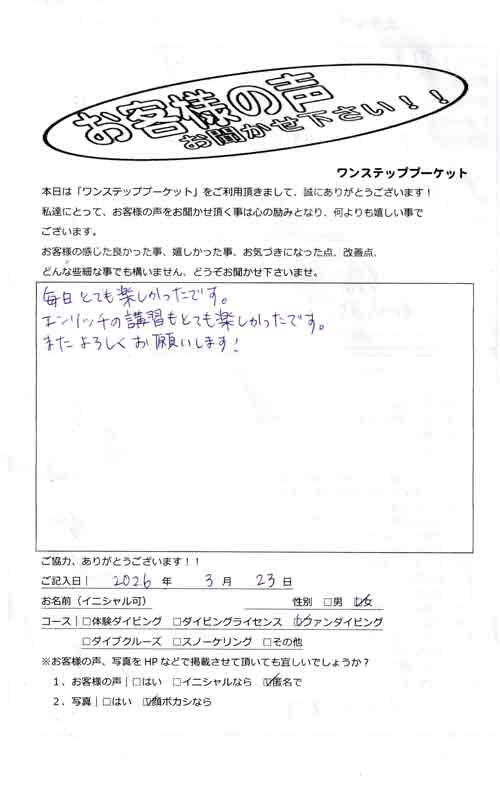 お客様の声
お聞かせ下さい！！
ワンステッププーケット
本日は「ワンステッププーケット」をご利用頂きまして、誠にありがとうございます！
私達にとって、お客様の声をお聞かせ頂く事は心の励みとなり、何よりも嬉しい事で
ございます。
お客様の感じた良かった事、嬉しかった事、お気づきになった点、改善点、
どんな些細な事でも構いません、どうぞお聞かせ下さいませ。
毎日とても楽しかったです。
エンリッチの講習もとても楽しかったです。
またよろしくお願いします！
ご協力、ありがとうございます！！
ご記入日| 2026 年 3 月 23 日
お名前（イニシャル可） 性別 □男 ☑女
コース|□体験ダイビング □ダイビングライセンス ☑ファンダイビング
□ダイブクルーズ □スノーケリング □その他
※お客様の声、写真を HP などで掲載させて頂いても宜しいでしょうか？
１．お客様の声|□はい □イニシャルなら ☑匿名で
２．写真|□はい ☑顔ボカシなら